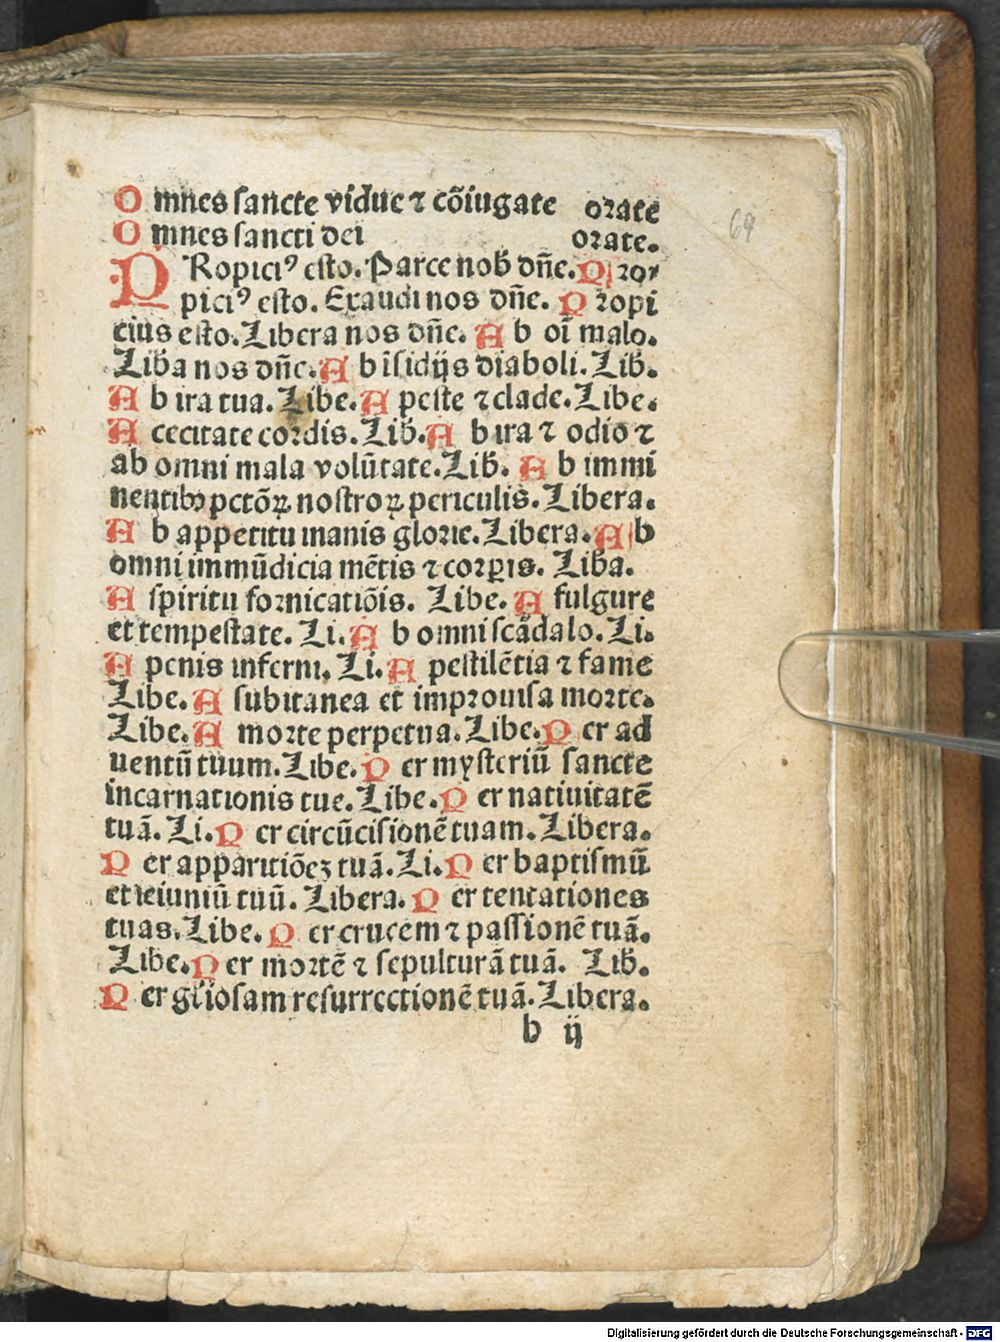 Omnes sancte vidue ⁊ cõiugate orate
Omnes sancti dei orate.
PRopiciꝰ esto. Parce nob̃ dñe. Pro⸗
piciꝰ esto. Exaudi nos dñe. Propi
cius esto. Libera nos dñe. Ab oĩ malo.
Lib̃a nos dñe. Ab ĩsidijs diaboli. Lib̃.
Ab ira tua. Libe. A peste ⁊ clade. Libe.
A cecitate cordis. Lib̃. Ab ira ⁊ odio ⁊
ab omni mala volũtate. Lib̃. Ab immi
nentibꝫ pctõꝝ nostroꝝ periculis. Libera.
Ab appetitu inanis glorie. Libera. Ab
omni immũdicia mẽtis ⁊ corꝑis. Lib̃a.
A spiritu fornicatiõis. Libe. A fulgure
et tempestate. Li. Ab omni scãdalo. Li.
A penis inferni. Li. A pestilẽtia ⁊ fame
Libe. A subitanea et improuisa morte.
Libe. A morte perpetua. Libe. Per ad
uentũ tuum. Libe. Per mysteriũ sancte
incarnationis tue. Libe. Per natiuitatẽ
tuã. Li. Per circũcisionẽ tuam. Libera.
Per apparitiõeꝫ tuã. Li. Per baptismũ
et ieiuniũ tuũ. Libera. Per tentationes
tuas. Libe. Per crucem ⁊ passionẽ tuã.
Libe. Per mortẽ ⁊ sepulturã tuã. Lib̃.
Per gl̃iosam resurrectionẽ tuã. Libera.
b ij
69
Digitalisierung gefördert durch die Deutsche Forschungsgemeinschaft - DFG